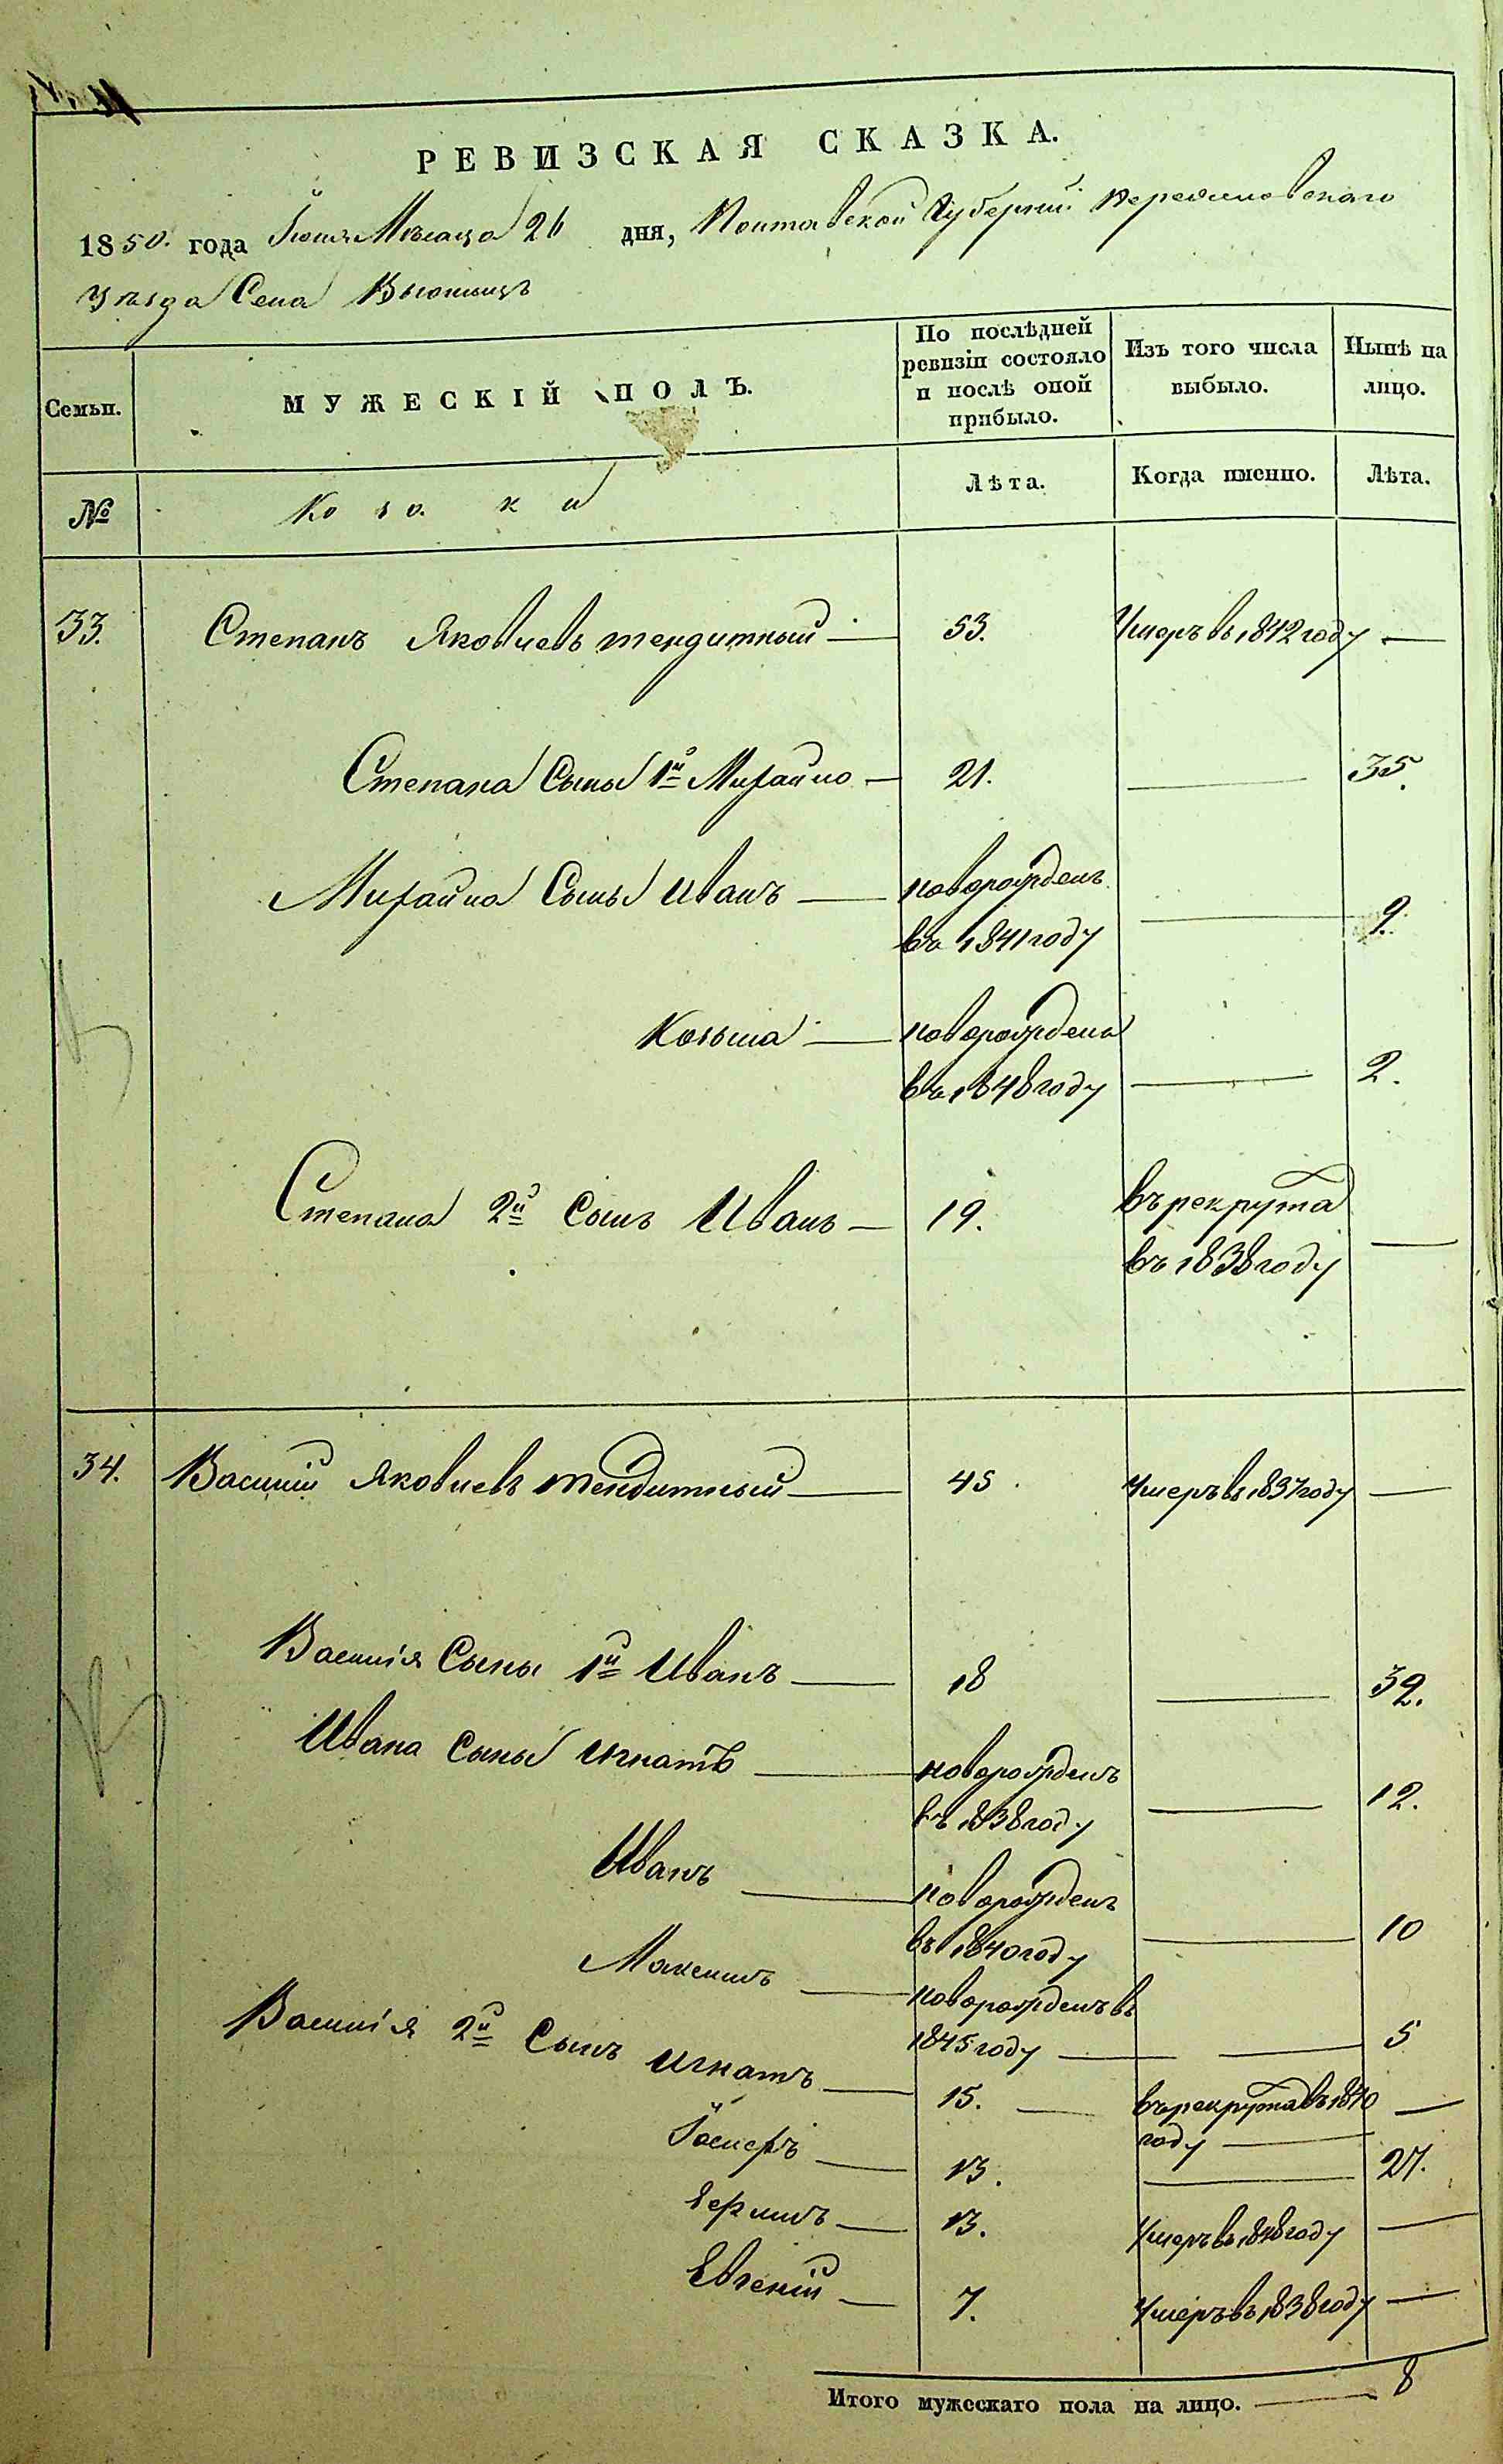 РЕВИЗСКАЯ СКАЗКА.
1850. года Іюня Мѣсяца 26 дня, Полтавской Губерніи Переяславского
Уѣзда Села Вьюнищъ
Семьи.
МУЖЕСКІЙ ПОЛЪ.
По послѣдней ревизіи состояло и послѣ оной прибыло.
Изъ того числа выбыло.
Нынѣ на лицо.
№
Козаки
Лѣта.
Когда именно.
Лѣта.
33. Степанъ Яковлевъ тендитный — 53. Умеръ въ 1842 году —
Степана Сыны 1й Михайло — 21. — 35.
Михайла Сыны Иванъ — новорожденъ
въ 1841 году — 9.
Козьма — новорожденъ
въ 1848 году — 2.
Степана 2й Сынъ Иванъ — 19. въ рекрута
въ 1838 году —
34. Василій Яковлевъ тендитный — 45. Умеръ въ 1837 году —
Василія Сыны 1й Иванъ — 18 — 32.
Ивана Сыны Игнатъ — новорожденъ
въ 1838 году — 12.
Иванъ — новорожденъ
въ 1840 году — 10
Максимъ — новорожденъ въ
1845 году — — 5
Василія 2й Сынъ Игнатъ — 15. — въ рекрута въ 1840 —
году —
Іосифъ — 13. — 27.
13. Умеръ въ 1848 году —
Евгеній — 7. Умеръ въ 1838 году —
Итого мужескаго пола на лицо. — 8